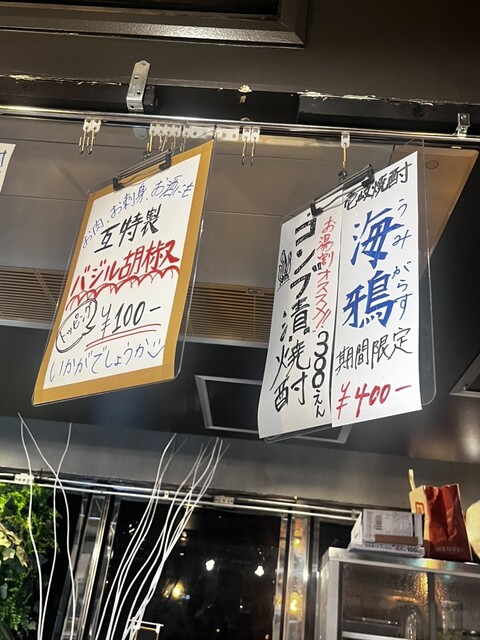 お肉、お刺身、お酒にも
互特製
バジル胡椒
トッピング
¥100-
いかがでしょうか
壱岐焼酎
海鴉
うみがらす
期間限定
¥400-
お湯割オススメ!!
コンブ漬焼酎
300えん